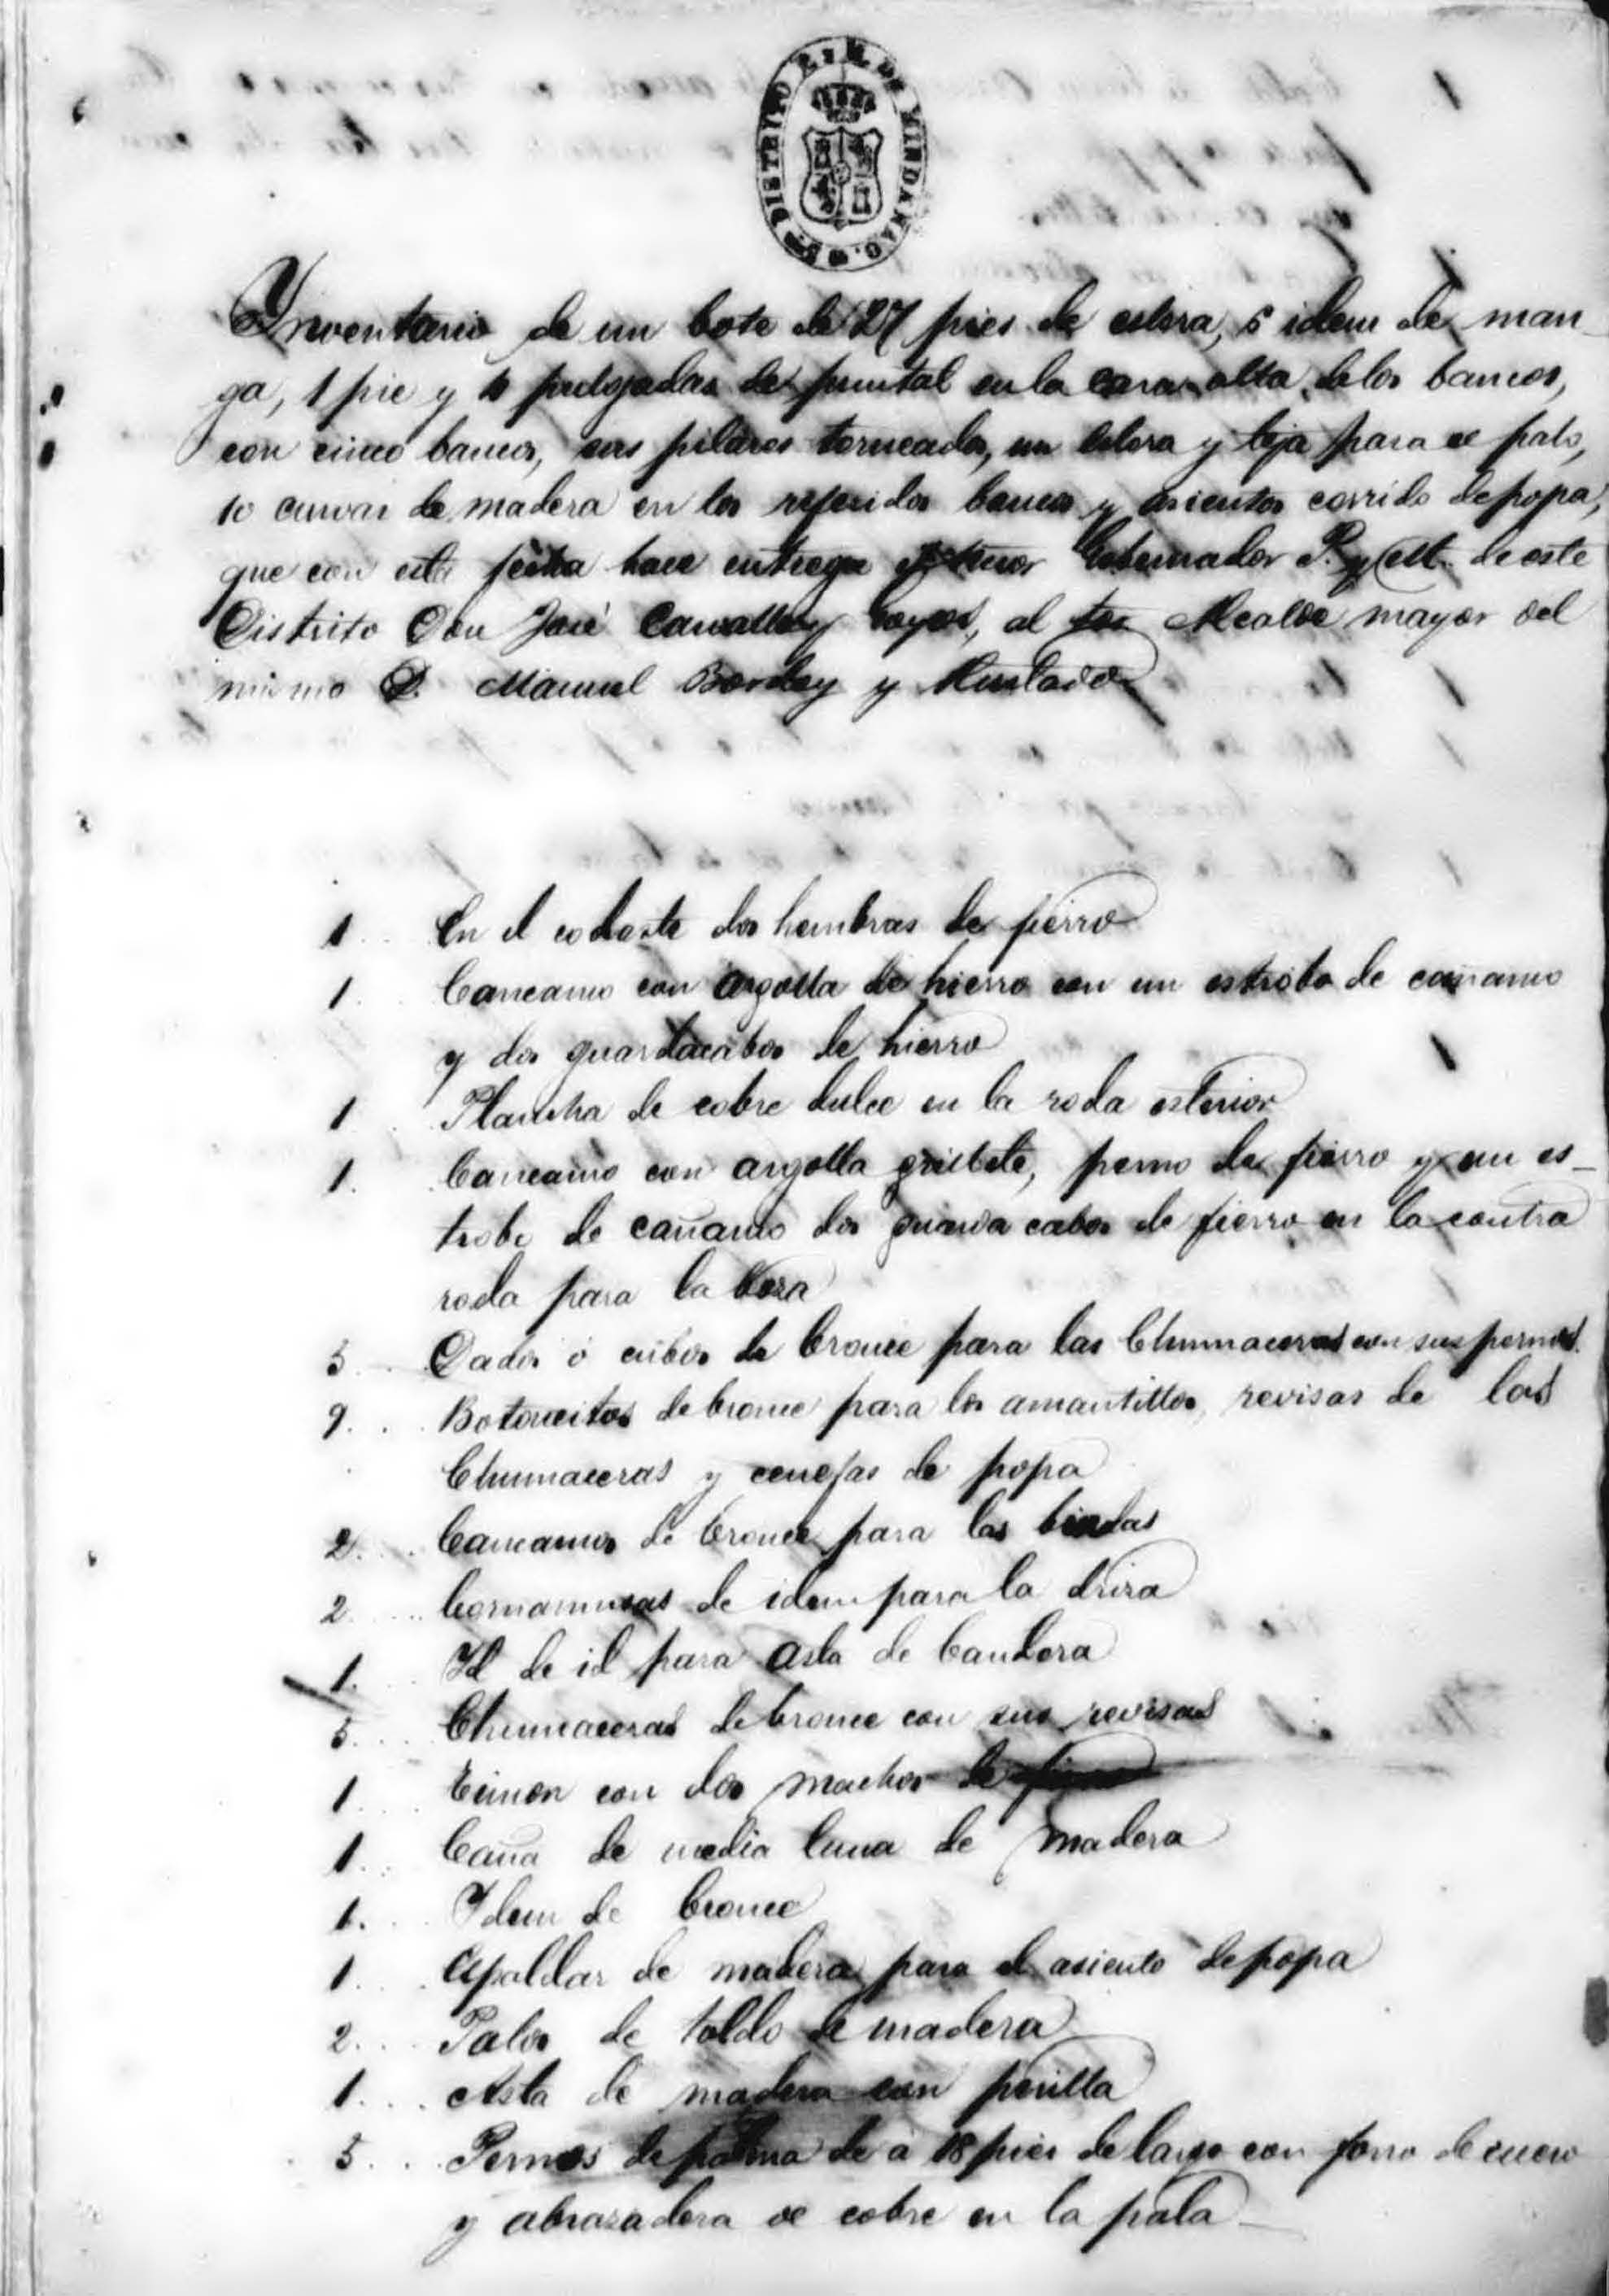 DISTRITO P. Y M. DE MINDANAO.
Ynventario de un bote de 27 pies de eslora, 5 idem de man-
ga, 1 pie y pulgadas de puntal en la cara alta de los bancos,
con cinco bancos, sus pilares torneados, un y para el palo,
10 curvas de madera en los referidos bancos y asientos corrido de popa,
que con esta fecha hace entrega el Señor Gobernador P. y M. de este
Distrito Don José y, al Alcalde mayor del
mismo D. Manuel y Hurtado
1.. En el codaste dos hembras de fierro
1.. Cancamo con argolla de hierro con un estrobo de cañamo
y dos guardacabos de hierro
1. Plancha de cobre dulce en la roda esterior
1. Cancamo con argolla grillete, perno de fierro y un es-
trobo de cañamo dos guarda cabos de fierro en la contra
roda para la boza
5... Dados ó cubos de bronce para las Chumaceras con sus pernos.
9... Botoncitos de bronce para los amantillos, revisas de las
Chumaceras y cenefas de popa
2.... Cancamos de bronce para las bindas
2.... Cornamusas de idem para la driza
1... Id de id para asta de bandera
5.... Chumaceras de bronce con sus revisas
1.... Timon con dos machos de fierro
1... Caña de media luna de madera
1... Idem de bronce
1... Espaldar de madera para el asiento de popa
2.... Palos de toldo de madera
1.... Asta de madera con perilla
5... Remos de palma de á 18 pies de largo con forro de cuero
y abrazadera de cobre en la pala